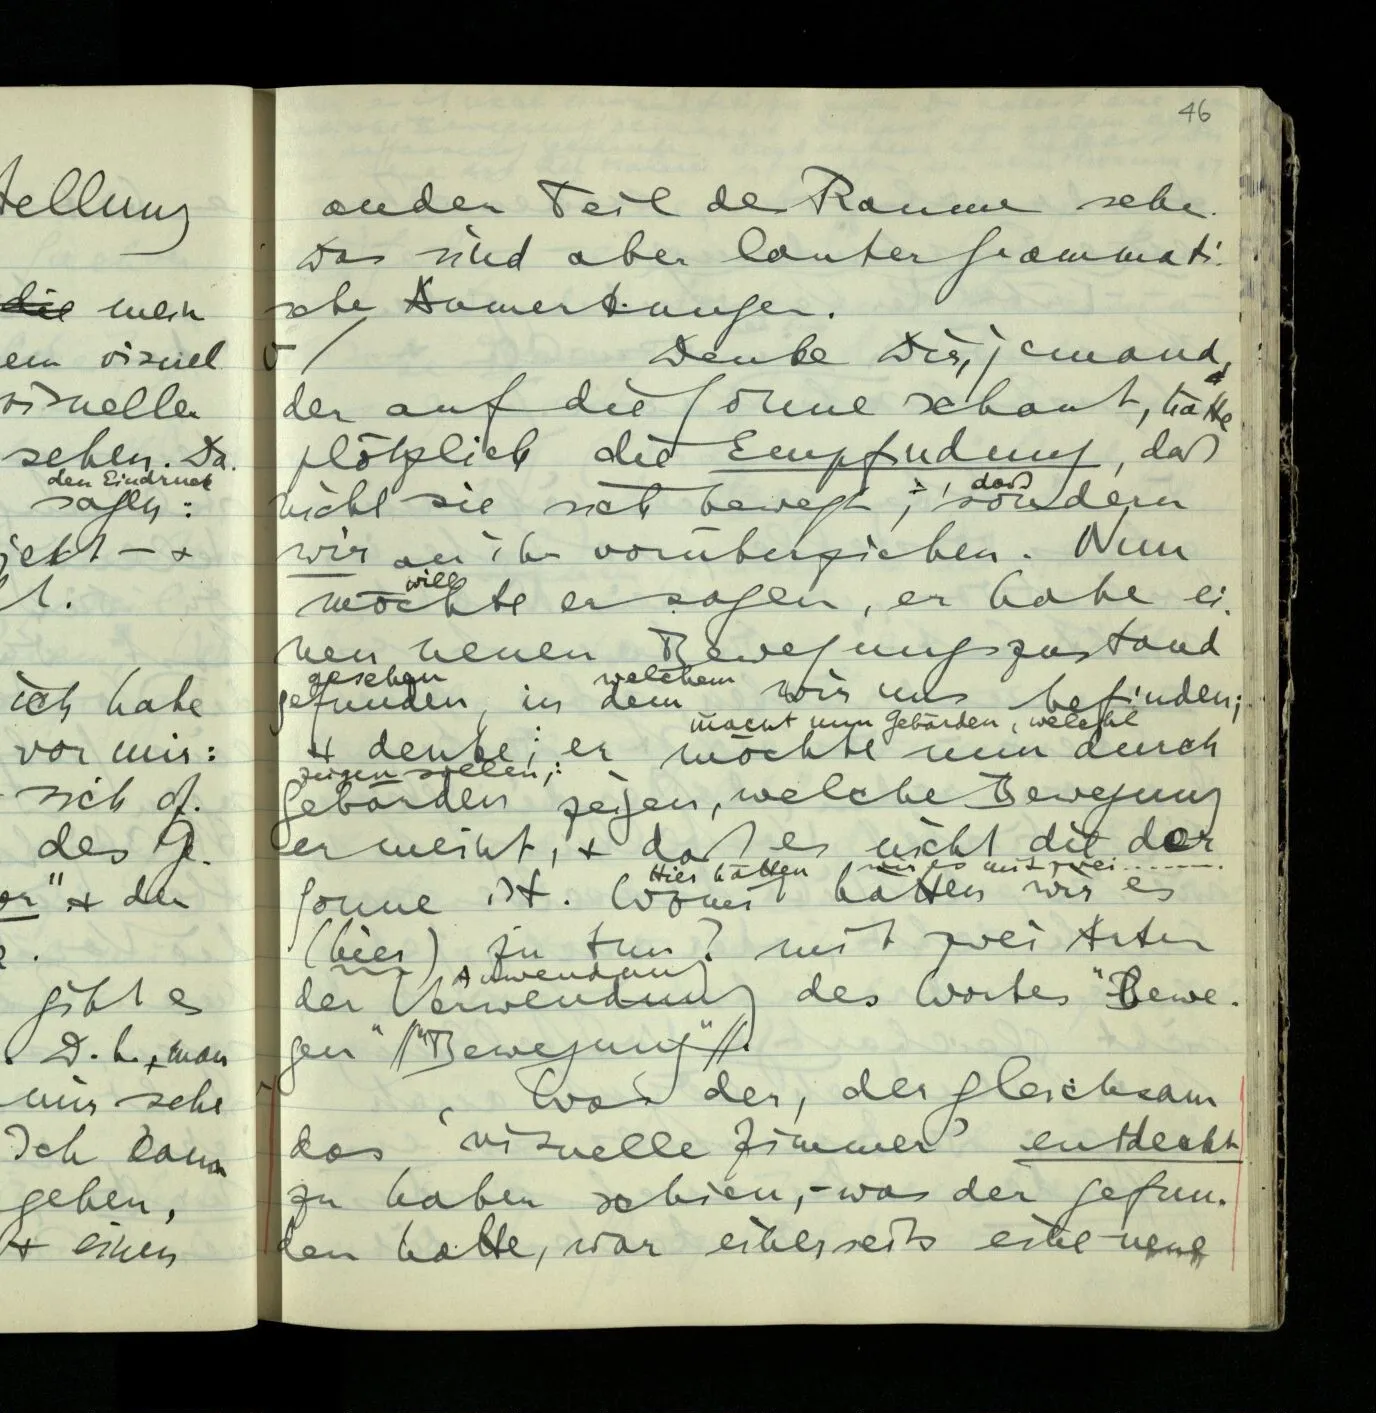 tellung
die mein
em visuel
visuellen
sehen. Da.
den Eindruck
sagen:
jekt – +
t.
ich habe
vor mir:
sich d.
des G.
er" + der
gibt es
D.h., man
mir sehe
Ich kann
geben,
+ einen
46
anderen Teil des Raumes sehe.
Das sind aber lauter grammati-
sche Anmerkungen.
/ Denke Dir, jemand,
der auf die Sonne schaut, hätte
plötzlich die Empfindung, daß
daß
nicht sie sich bewegt, sondern
wir an ihr vorüberziehen. Nun
will
möchte er sagen, er habe ei-
nen neuen Bewegungszustand
gesehen welchem
gefunden, in dem wir uns befinden;
macht nun Gebärden, welche
+ denke; er möchte nun durch
zeigen sollen,:
Gebärden zeigen, welche Bewegung
er meint, + daß es nicht die der
Hier hätten wir es mit zwei ........
Sonne ist. Womit hätten wir es
(hier) zu tun? mit zwei Arten
Anwendung
der Verwendung des Wortes "Bewe-
gen" //"Bewegung"//.
Was der, der gleichsam
das 'visuelle Zimmer' entdeckt
zu haben schien, – was der gefun-
den hatte, war einerseits eine neue